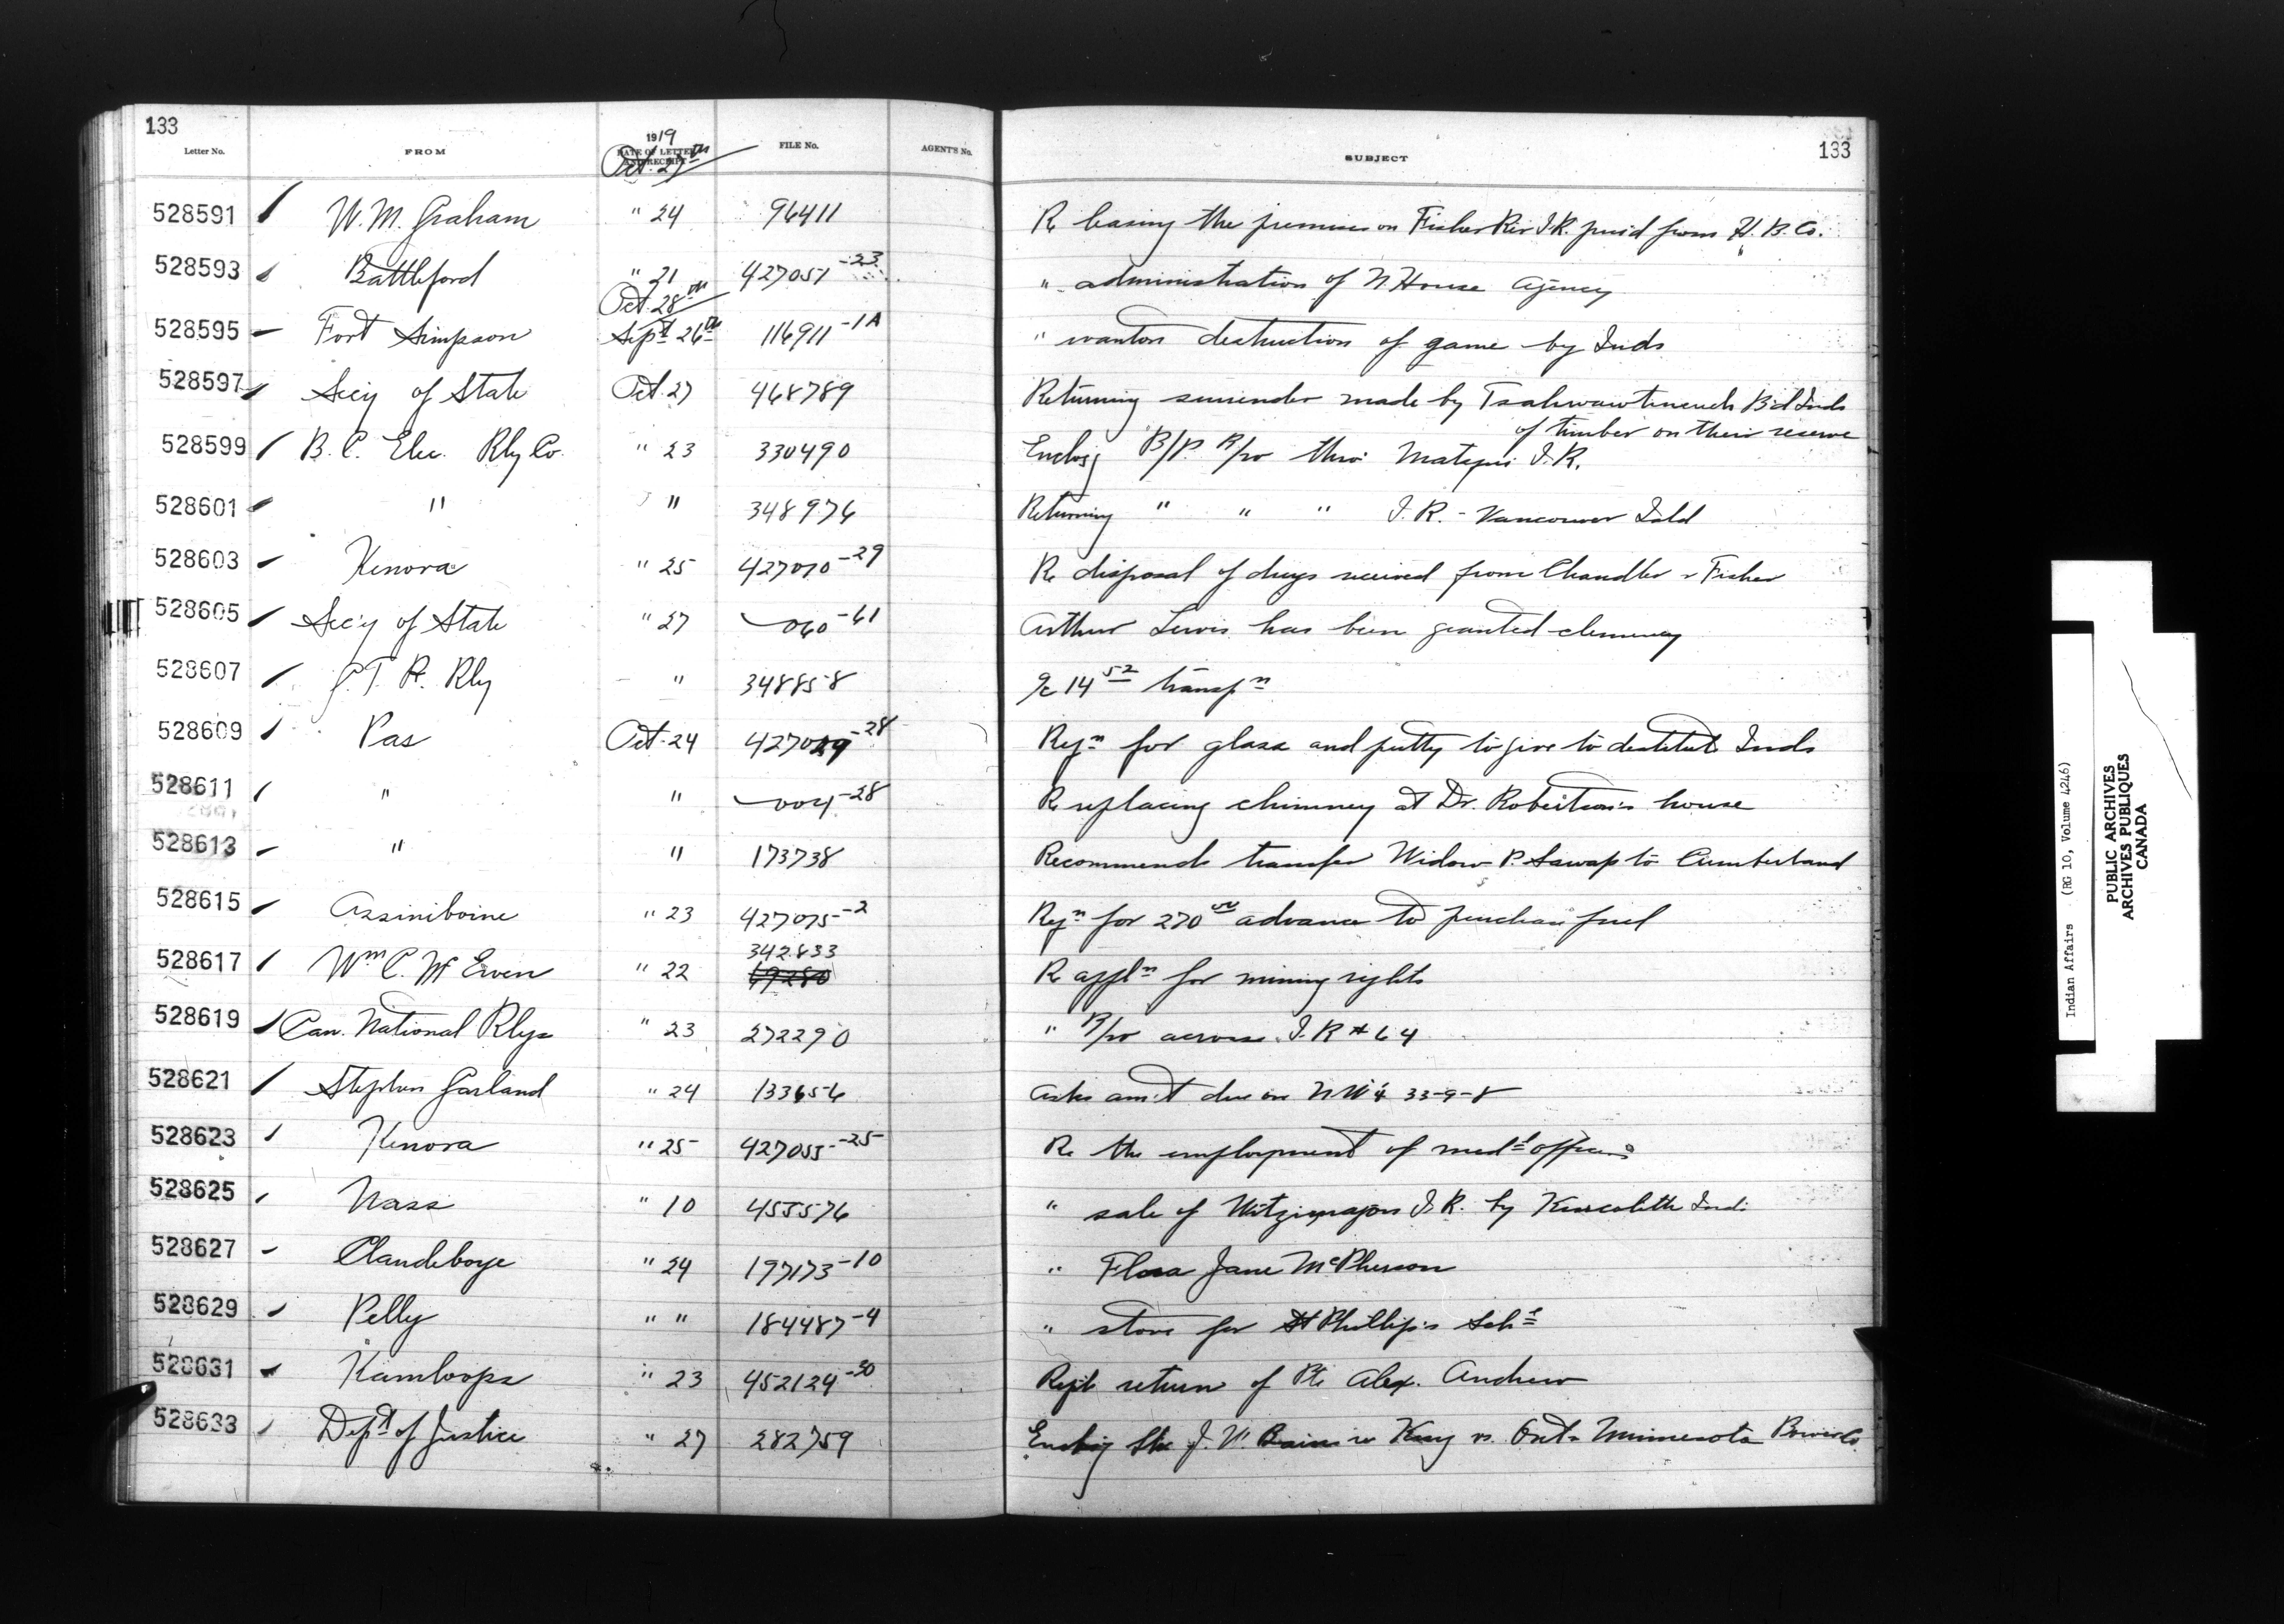 133
Letter No. FROM 1919 DATE OF LETTER AND RECEIPT FILE No. AGENT'S No. SUBJECT 133
Oct. 27th
528591 W. M. Graham " 24 96411 Re leasing the premises on Fisher Riv I.R. purd from H. B. Co.
528593 Battleford " 21 427051-23 " administration of N. House Agency
Oct. 28th
528595 Fort Simpson Sept 26th 116911-1A " wanton destruction of game by Inds
528597 Secy of State Oct. 27 468789 Returning surrender made by Tsahwawtineuch Bd Inds
of timber on their reserve
528599 B. C. Elec. Rly Co. " 23 330490 Enclosg B/P. R/w thro' Matsqui I.R.
528601 " " 348976 Returning " " " I. R. - Vancouver Isld
528603 Kenora " 25 427070-29 Re disposal of drugs received from Chandler & Fisher
528605 Sec'y of State " 27 060-61 Arthur Lewis has been granted clemency
528607 G. T. P. Rly " 348858 a/c 14 52 transpn
528609 Pas Oct. 24 427029-28 Reqn for glass and putty to give to destitute Inds
528611 " " 004-28 Re replacing chimney at Dr. Robertson's house
528613 " " 173738 Recommends transfer Widow P. Sawap to Cumberland
528615 Assiniboine " 23 427075-2 Reqn for 270 00 advance to purchase fuel
342833
528617 Wm C. McEwen " 22 69280 Re appln for mining rights
528619 Can. National Rlys " 23 272290 " R/w across I. R # 64
528621 Stephen Garland " 24 133656 Asks am't due on N W 1/4 33-9-8
528623 Kenora " 25 427055-25 Re the employment of medl officers
528625 Nass " 10 455576 " sale of I. R. by Kincolith Inds
528627 Clandeboye " 24 197173-10 " Flora Jane McPherson
528629 Pelly " " 184487-4 " stove for St Phillip's Schl
528631 Kamloops " 23 452124-30 return of Pte Alex. Andrew
528633 Dept of Justice " 27 282759 J. W. Bain re King vs. Ont & Minnesota Power Co
Indian Affairs (RG 10, Volume 4246)
PUBLIC ARCHIVES
ARCHIVES PUBLIQUES
CANADA